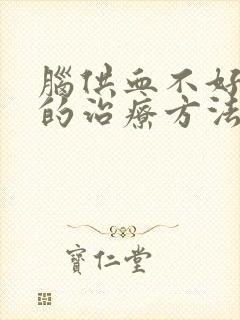 腦供血不好
的治療方法
寶仁堂